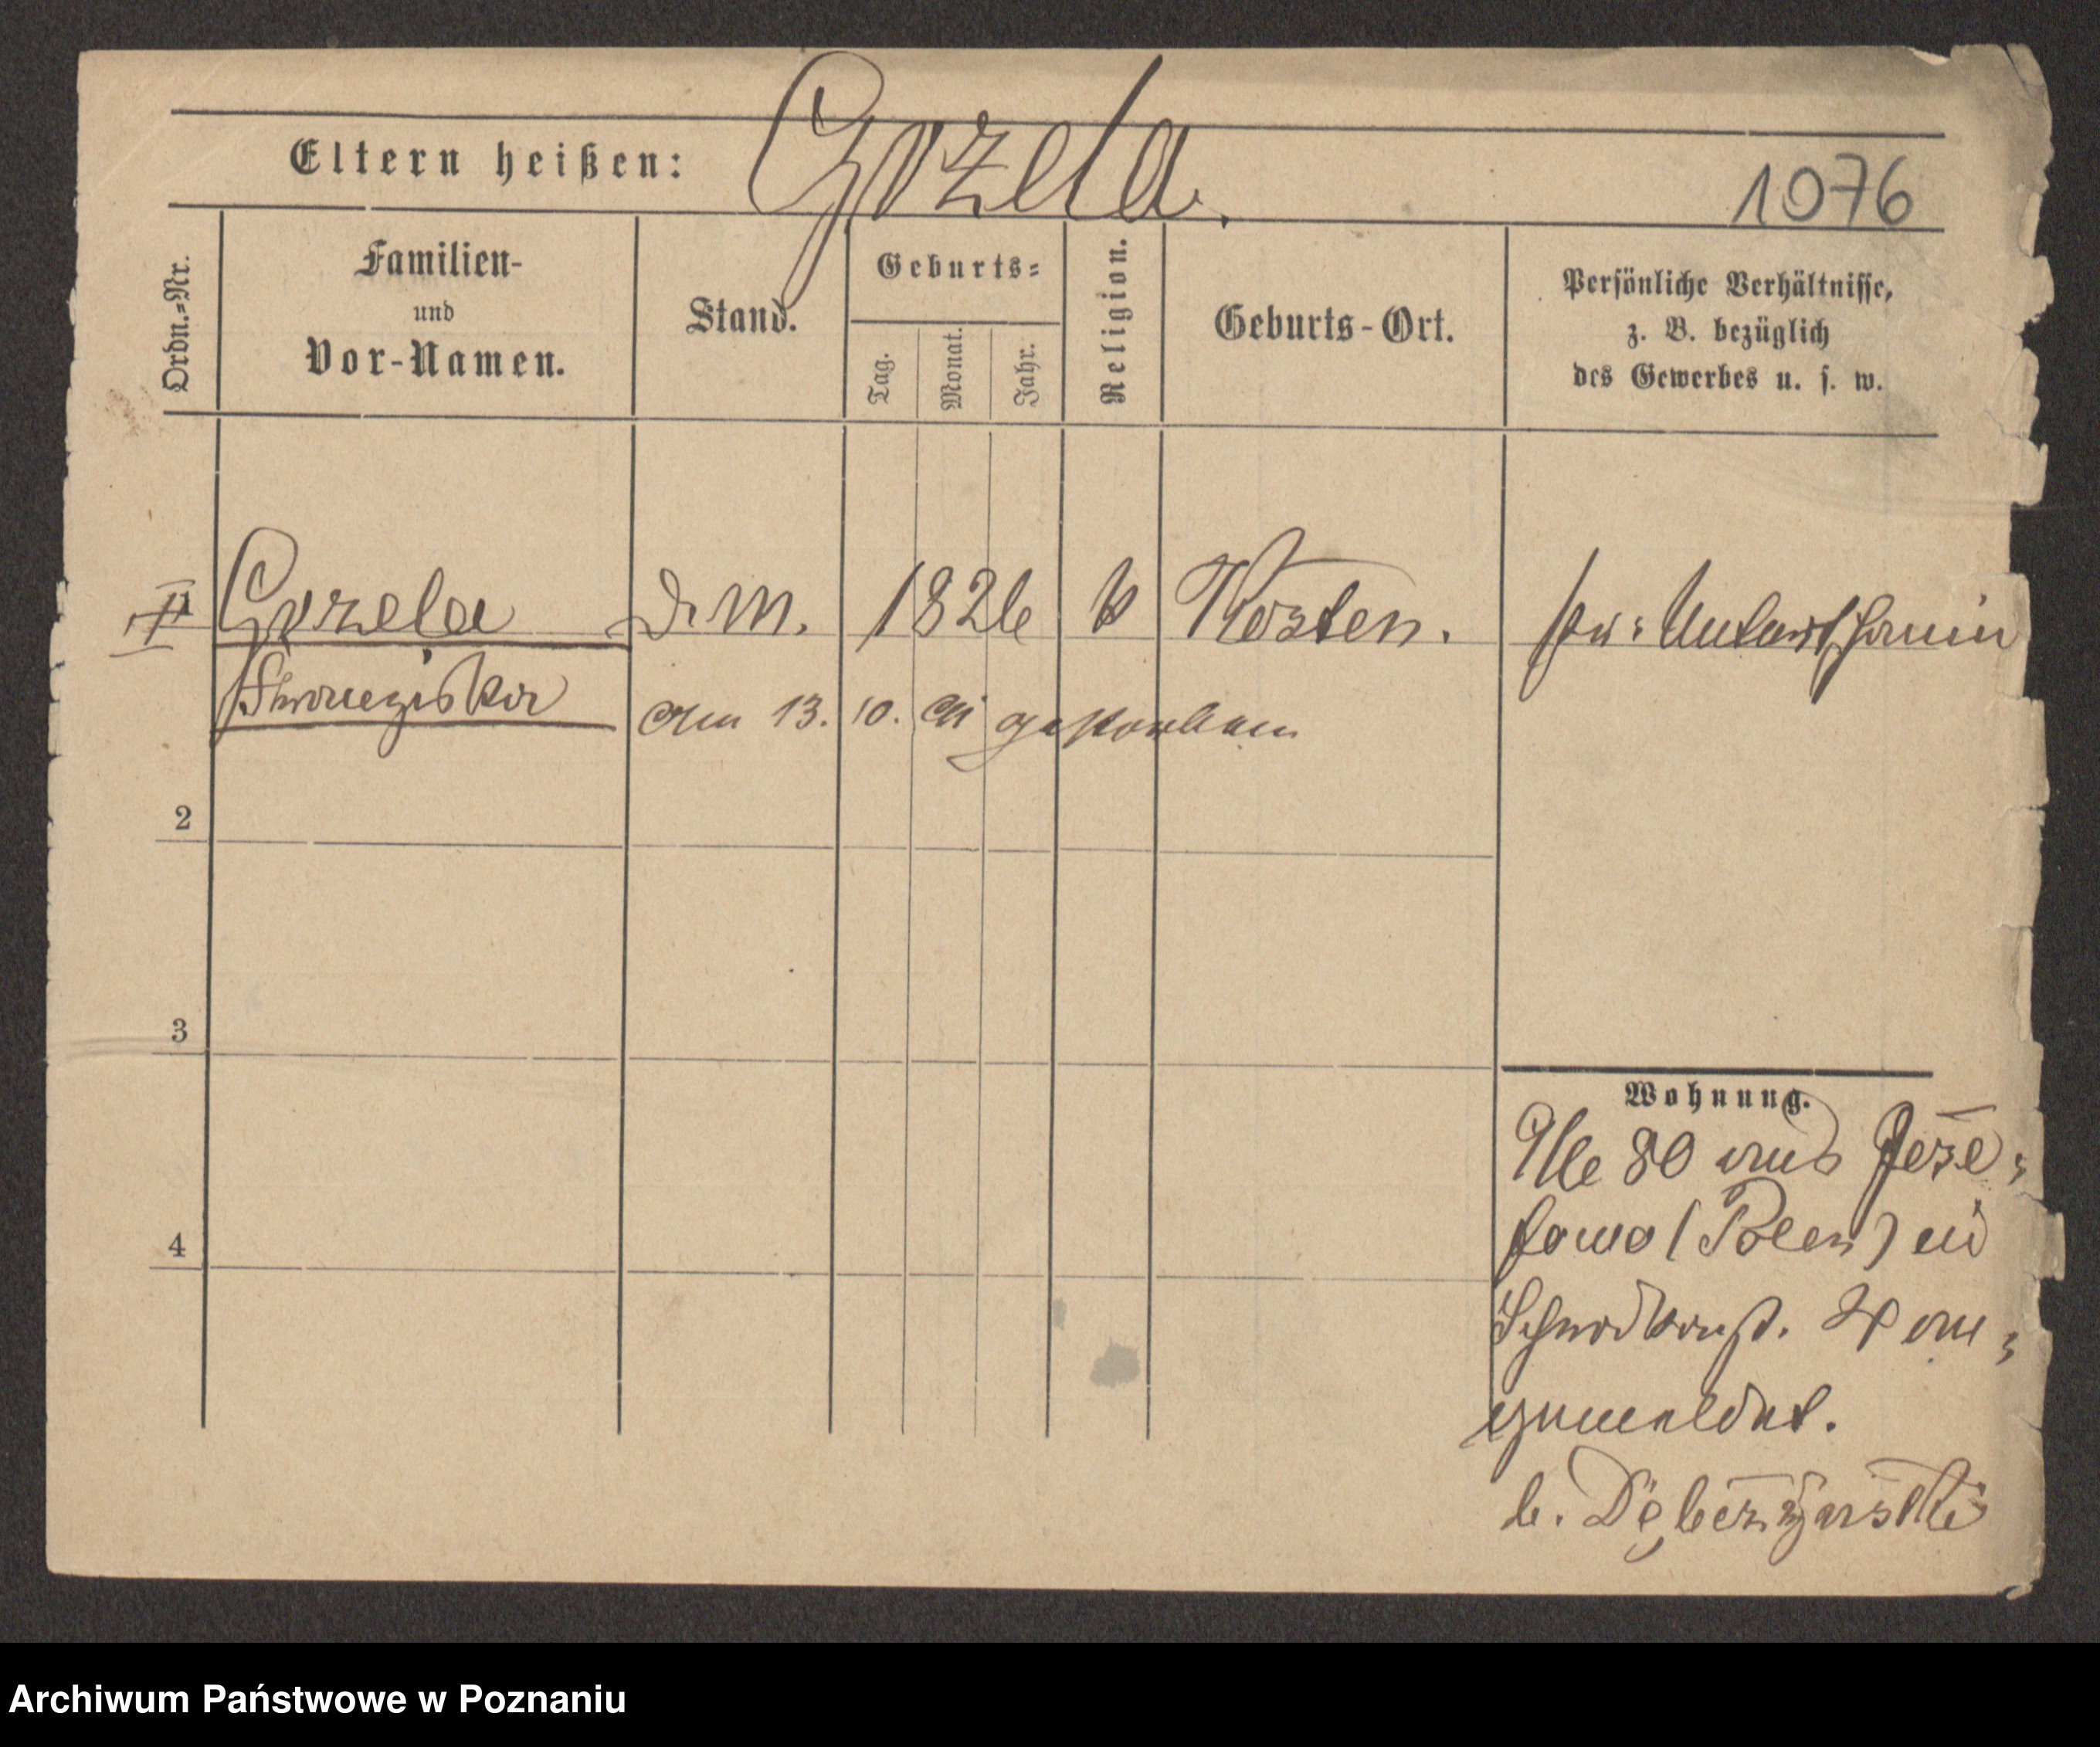 Eltern heißen: Gozela.
1076
Ordn.=Nr.
Familien-
und
Vor-Namen.
Stand.
Geburts=
Tag.
Monat.
Jahr.
Religion.
Geburts-Ort.
Persönliche Verhältnisse,
z. B. bezüglich
des Gewerbes u. s. w.
1 Gozela D. M. 1826 k Kosten.
Franziska am 13. 10. gestorben
2
3
4
Wohnung.
80 aus
(Polen) in
Schrodkastr. 4 an=
gemeldet.
b.
Archiwum Państwowe w Poznaniu